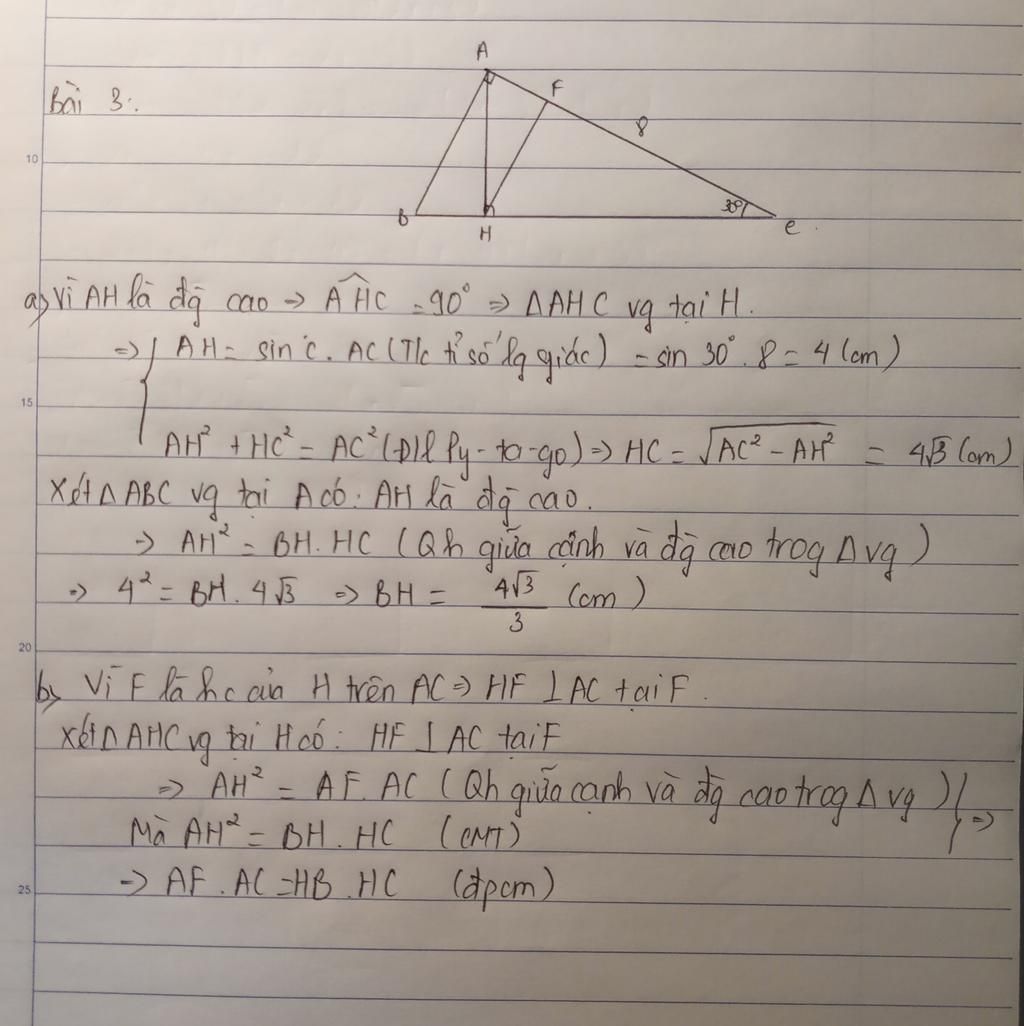 Bài 3:
A
F
8
10
30°
B
H
C
a) Vì AH là đg̀ cao => AHC = 90° => ΔAHC vg tại H.
=> { AH = sin C. AC (T/c tỉ số lg giác) = sin 30°. 8 = 4 (cm)
15
AH² + HC² = AC² (Đ/l Py-ta-go) => HC = √AC² - AH² = 4√3 (cm)
Xét Δ ABC vg tại A có: AH là đg̀ cao.
=> AH² = BH. HC (Qh giữa cạnh và đg̀ cao trog Δ vg)
=> 4² = BH. 4√3 => BH = 4√3/3 (cm)
20
b) Vì F là hc của H trên AC => HF ⊥ AC tại F.
Xét Δ AHC vg tại H có: HF ⊥ AC tại F
=> AH² = AF. AC (Qh giữa cạnh và đg̀ cao trog Δ vg) } =>
Mà AH² = BH. HC (CMT)
25
=> AF. AC = HB. HC (đpcm)